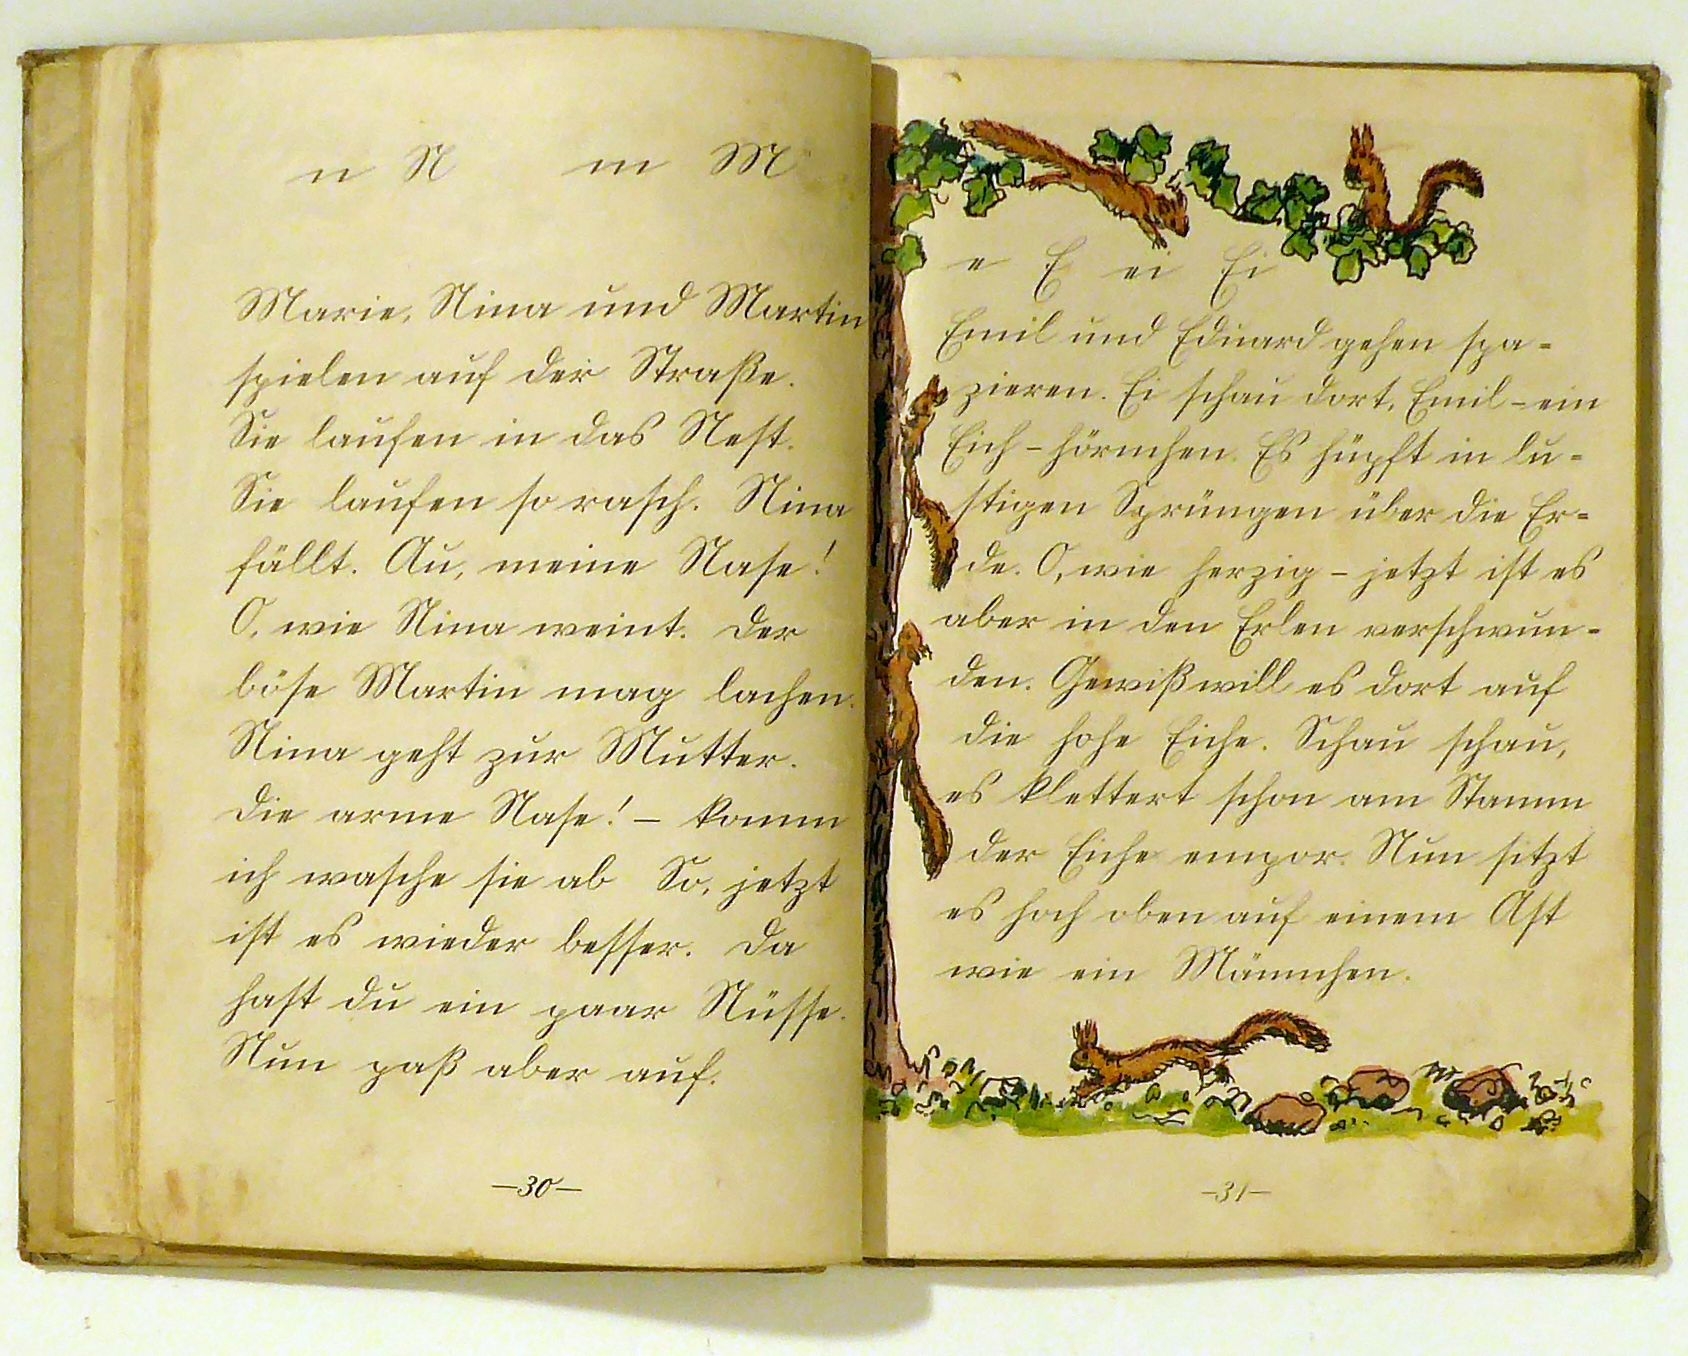 n N m M
Marie, Nina und Martin
spielen auf der Straße.
Sie laufen in das Nest.
Sie laufen so rasch. Nina
fällt. Au, meine Nase!
O, wie Nina weint. Der
böse Martin mag lachen.
Nina geht zur Mutter.
Die arme Nase! – Komm
ich wasche sie ab So, jetzt
ist es wieder besser. Da
hast du ein paar Nüsse.
Nun paß aber auf.
–30–
e E ei Ei
Emil und Eduard gehen spa-
zieren. Ei schau dort, Emil – ein
Eich-hörnchen. Es hüpft in lu-
stigen Sprüngen über die Er-
de. O, wie herzig – jetzt ist es
aber in den Erlen verschwun-
den. Gewiß will es dort auf
die hohe Eiche. Schau schau,
es klettert schon am Stamm
der Eiche empor. Nun sitzt
es hoch oben auf einem Ast
wie ein Männchen.
–31–